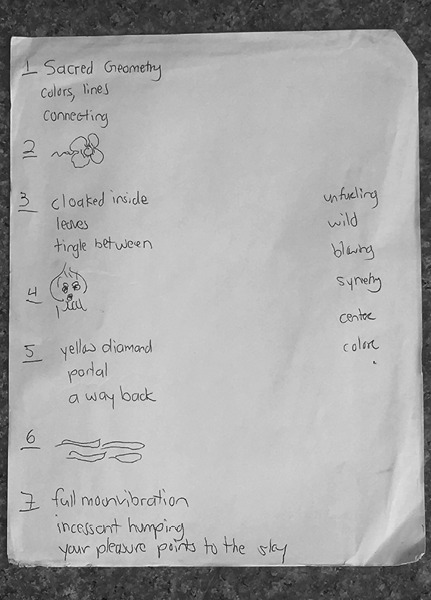 1 Sacred Geometry
colors, lines
connecting
2
3 cloaked inside
leaves
tingle between
4
5 yellow diamond
portal
a way back
6
7 full moonvibration
incessant humping
your pleasure points to the sky
unfueling
wild
blowing
symetry
centre
colore